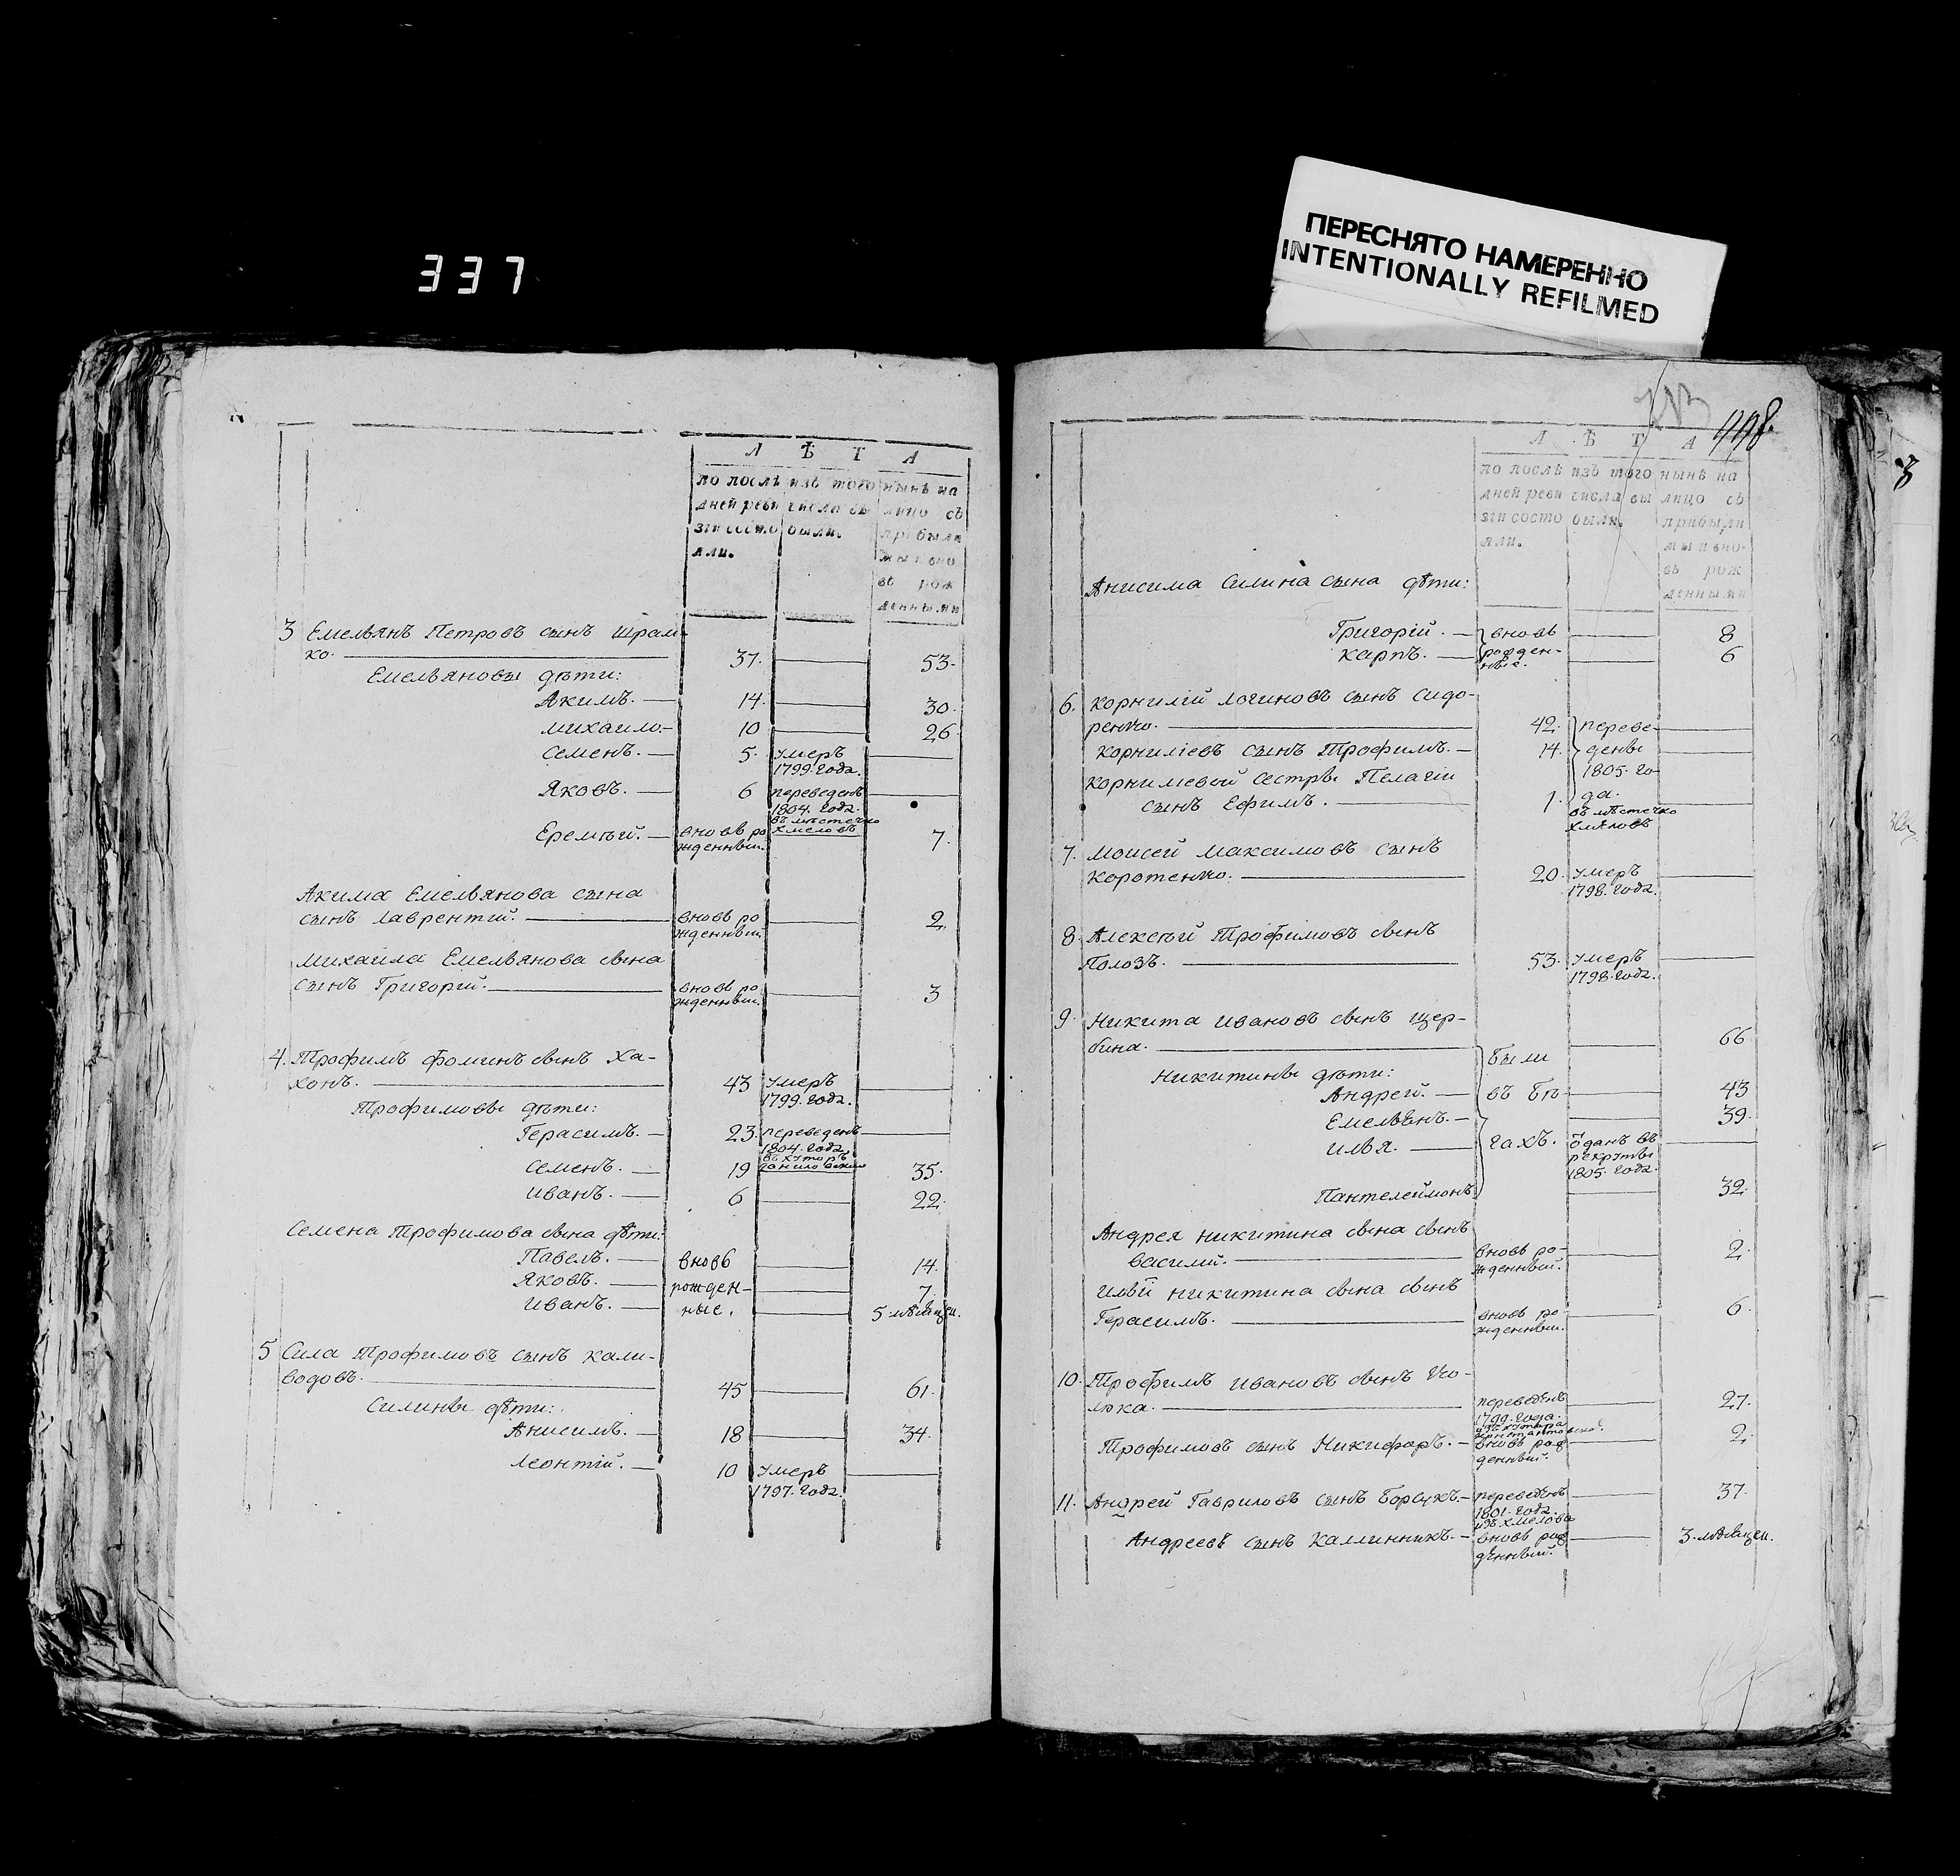 337
ПЕРЕСНЯТО НАМЕРЕННО
INTENTIONALLY REFILMED
Л Ѣ Т А
по послѣ изъ того нынѣ на
дней реви числа вы лицо съ
зіи состо были. прибыли
яли. ми и вно
въ рож
денными
3 Емельянъ Петровъ сынъ Шрам-
ко. 37. 53.
Емельяновы дѣти:
Акимъ. 14. 30.
Михаило. 10 26
Семенъ. 5. умеръ
1799. года.
Яковъ. 6 переведенъ
1804. года.
въ мѣстечко
Хмеловъ
Еремѣй. вновь ро 7.
жденный.
Акима Емельянова сына
сынъ Лаврентій. вновь ро 2.
жденный.
Михаила Емельянова сына
сынъ Григорій. вновь ро 3
жденный.
4. Трофимъ Фоминъ сынъ Ха-
хонъ. 43 умеръ
1799. года.
Трофимовы дѣти:
Герасимъ. 23. переведенъ
1804. года
въ хуторъ
Семенъ. 19 35.
Иванъ. 6 22.
Семена Трофимова сына дѣти:
Павелъ. вновь 14.
Яковъ. рожден- 7.
Иванъ. ные. 5 мѣсяцеи.
5 Сила Трофимовъ сынъ Кали-
водовъ. 45 61.
Силины дѣти:
Анисимъ. 18 34.
Леонтій. 10 умеръ
1797. года.
498.
Л Ѣ Т А
по послѣ изъ того нынѣ на
дней реви числа вы лицо съ
зіи состо были. прибыли
яли. ми и вно-
въ рож
денными
Анисима Силина сына дѣти:
Григорій. вновь 8
Карпъ. рожден- 6
ные.
6. Корнилій Логиновъ сынъ Сидо-
ренко. 42. переве-
Корниліевъ сынъ Трофимъ. 14. дены
Корнилиевой сестры Пелагіи 1805. го-
сынъ Ефимъ. 1. да.
въ мѣстечко
Хмѣловъ
7. Моисей Максимовъ сынъ
Коротенко. 20. умеръ
1798. года.
8. Алексѣй Трофимовъ сынъ
Полозъ. 53. умеръ
1798. года.
9. Никита Ивановъ сынъ Щер-
бина. Были 66
Никитины дѣти:
Андрей. въ Бѣ 43
Емельянъ. 39.
Илья. гахъ. ѿданъ въ
рекруты
1805. года.
Пантелеймонъ 32.
Андрея Никитина сына сынъ
Василій. вновь ро- 2.
жденный.
Ильи Никитина сына сынъ
Герасимъ. вновь ро 6.
жденный.
10. Трофимъ Ивановъ сынъ Ко-
люка. переведенъ 27.
1799. года.
изъ хутора
Трофимовъ сынъ Никифоръ. вновь рож 2.
денный.
11. Андрей Гавриловъ сынъ Борсукъ. переведенъ 37.
1801. года.
изъ Хмелова
Андреевъ сынъ Каллинникъ. вновь рож 3. мѣсяцеи.
денный.